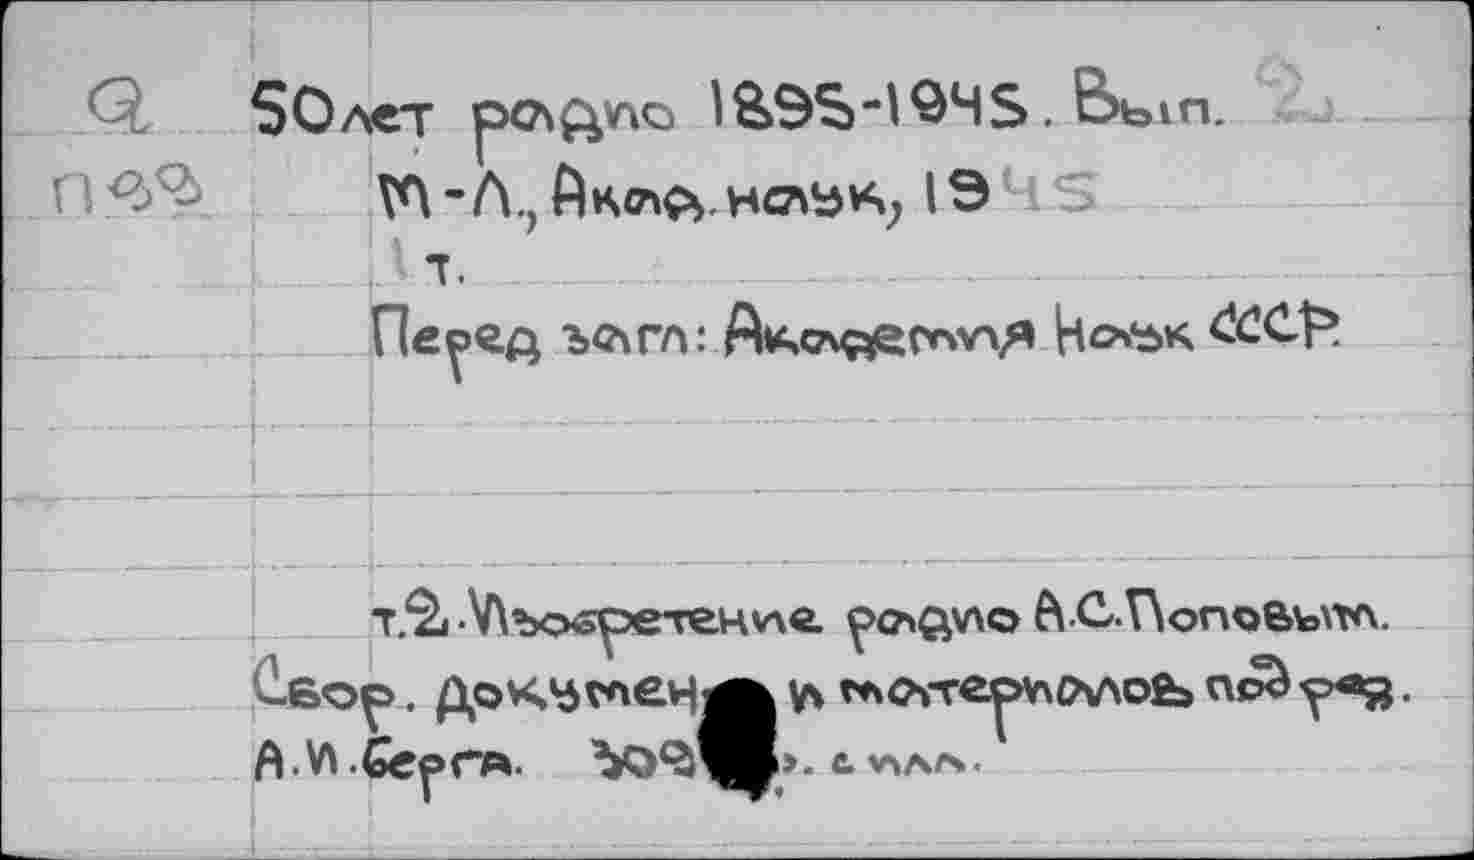 Я 50 лет радио 1895-1945. Вып. 2
п М-Л., Акад. наук, 1945
т.
Перед загл: Академия Наук СССР.
т.2. Изобретение радио А.С.Поповым.
Сбор. и материалов под ред.
А.И.Берга. с илл.